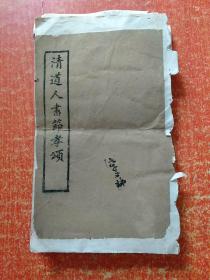 清道人書節孝頌